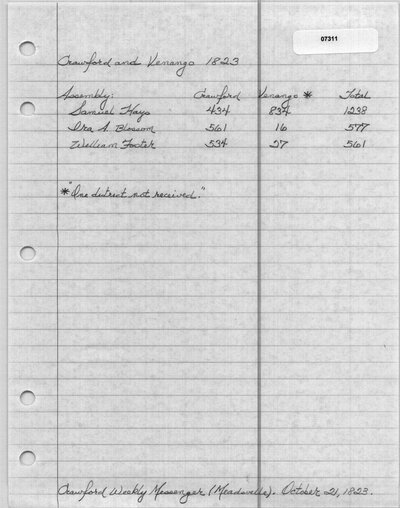 07311
Crawford and Venango 1823
Assembly: Crawford Venango * Total
Samuel Hays 434 834 1238
Ira A. Blossom 561 16 577
William Foster 534 27 561
* "One district not received."
Crawford Weekly Messenger (Meadville). October 21, 1823.